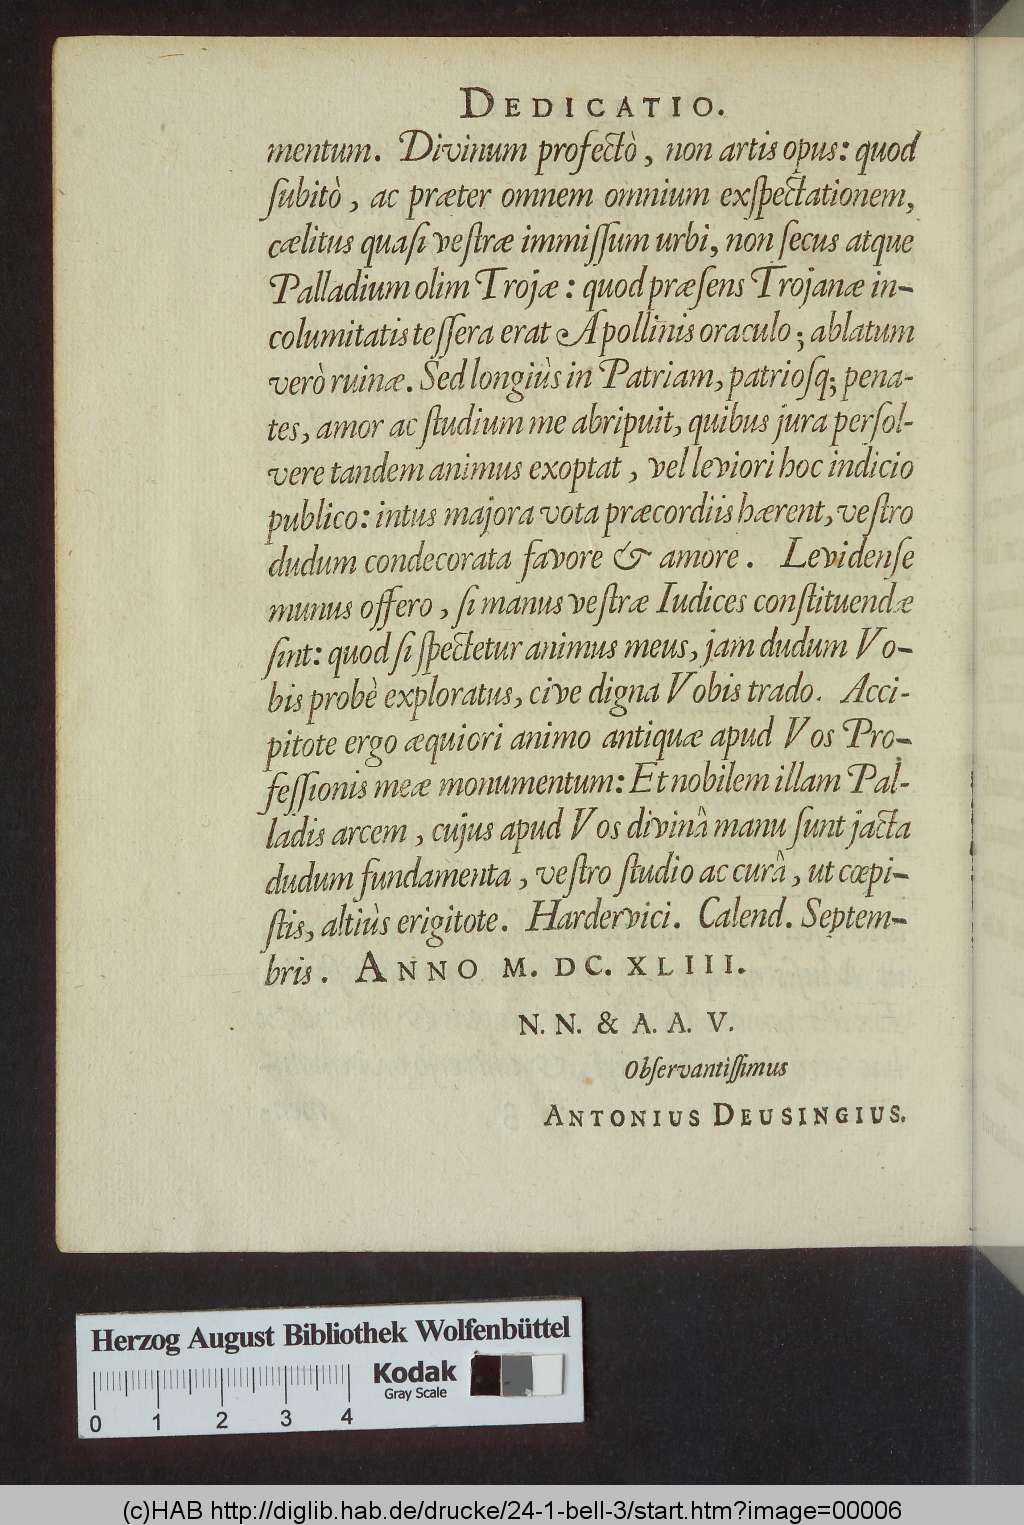 DEDICATIO.
mentum. Divinum profectò, non artis opus: quod
ſubitò, ac præter omnem omnium exſpectationem,
cælitus quaſi veſtræ immiſſum urbi, non ſecus atque
Palladium olim Trojæ: quod præſens Trojanæ in-
columitatis teſſera erat Apollinis oraculo; ablatum
verò ruinæ. Sed longiùs in Patriam, patrioſq; pena-
tes, amor ac ſtudium me abripuit, quibus jura perſol-
vere tandem animus exoptat, vel leviori hoc indicio
publico: intus majora vota præcordiis hærent, veſtro
dudum condecorata favore & amore. Levidenſe
munus offero, ſi manus veſtræ Iudices conſtituendæ
ſint: quod ſi ſpectetur animus meus, jam dudum Vo-
bis probè exploratus, cive digna Vobis trado. Acci-
pitote ergo æquiori animo antiquæ apud Vos Pro-
feſſionis meæ monumentum: Et nobilem illam Pal-
ladis arcem, cujus apud Vos divinâ manu ſunt jacta
dudum fundamenta, veſtro ſtudio ac curâ, ut cœpi-
ſtis, altiùs erigitote. Hardervici. Calend. Septem-
bris. ANNO M. DC. XLIII.
N. N. & A. A. V.
Obſervantiſſimus
ANTONIUS DEUSINGIUS.
Herzog August Bibliothek Wolfenbüttel
Kodak
Gray Scale
0 1 2 3 4
(c)HAB http://diglib.hab.de/drucke/24-1-bell-3/start.htm?image=00006